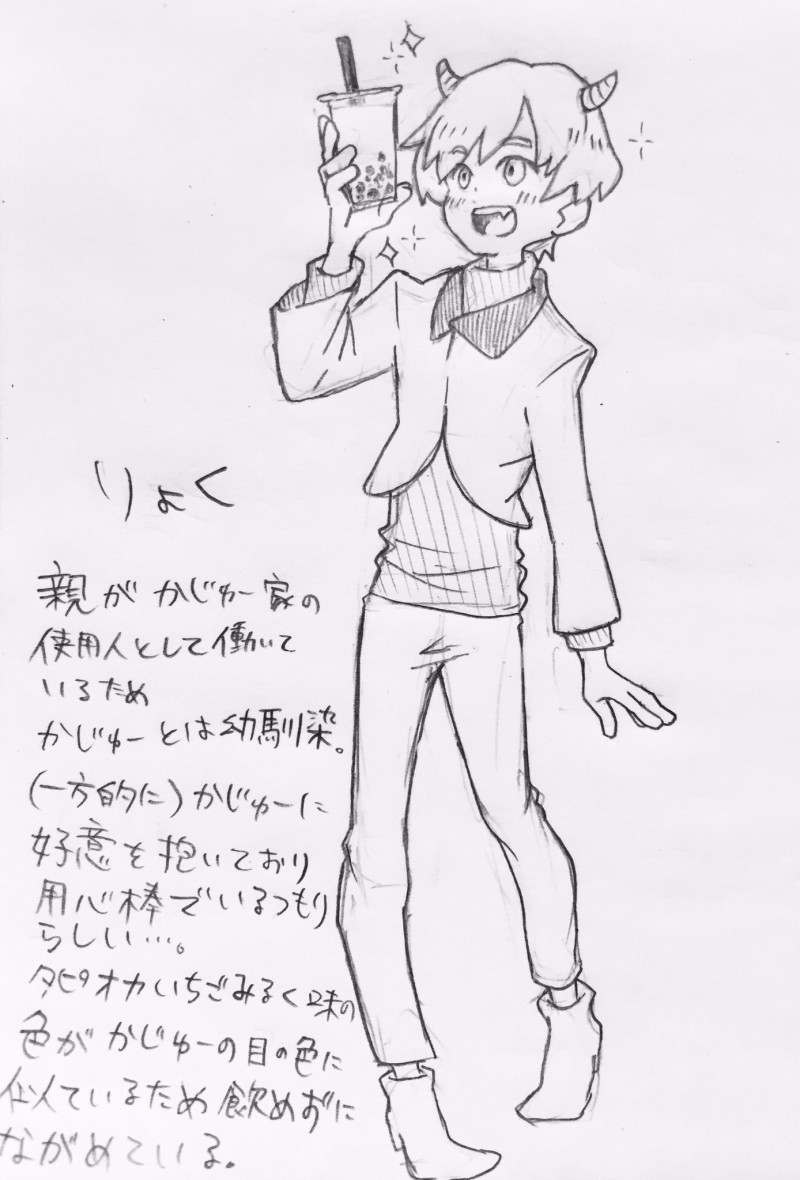 りょく
親が かじゅー家の
使用人として働いて
いるため
かじゅーとは幼馴染。
(一方的に)かじゅーに
好意を抱いており
用心棒でいるつもり
らしい…。
タピオカいちごみるく味の
色が かじゅーの目の色に
似ているため飲めずに
ながめている。